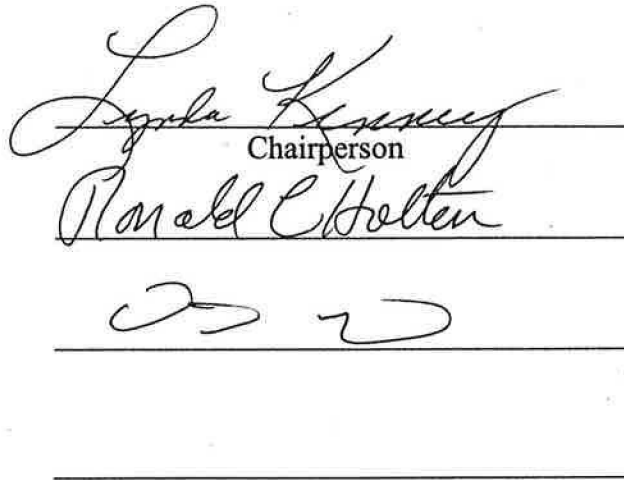 Lynda Kenney
Chairperson
Ronald C Holten